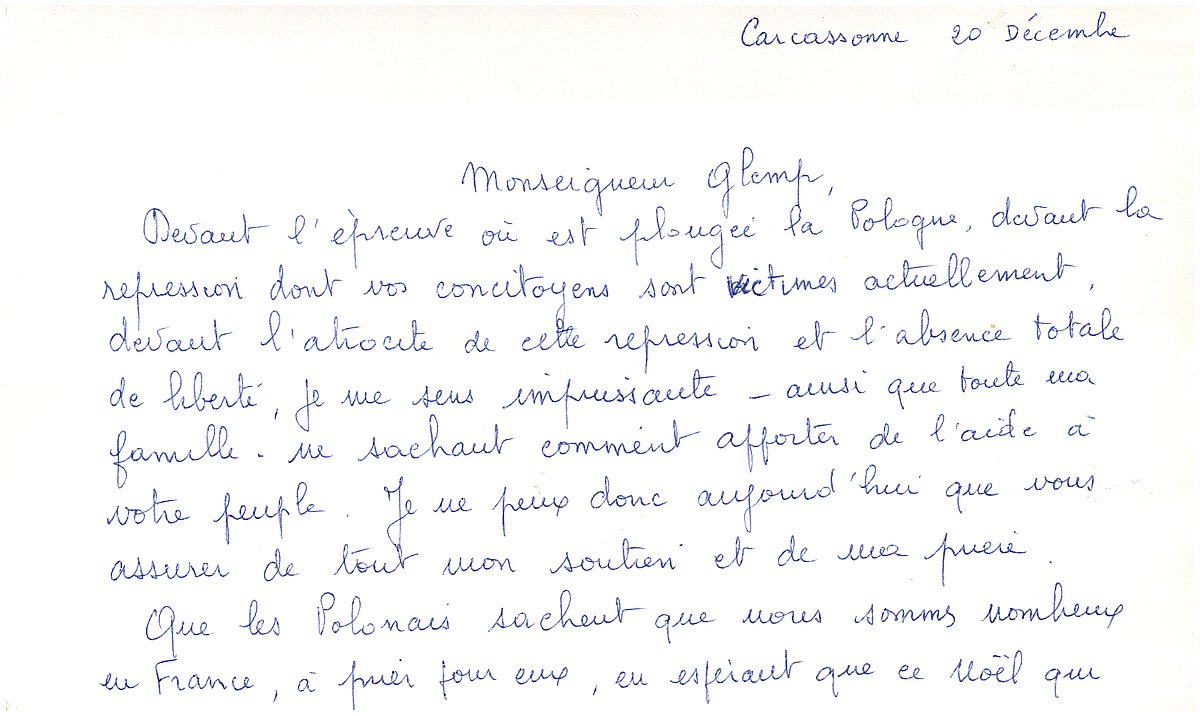 Carcassonne 20 Décembre
Monseigneur Glemp,
Devant l'épreuve où est plongée la Pologne, devant la
repression dont vos concitoyens sont victimes actuellement,
devant l'atrocité de cette repression et l'absence totale
de liberté, je me sens impuissante – ainsi que toute ma
famille - ne sachant comment apporter de l'aide à
votre peuple. Je ne peux donc aujourd'hui que vous
assurer de tout mon soutien et de ma prière.
Que les Polonais sachent que nous sommes nombreux
en France, à prier pour eux, en espérant que ce Noël qui